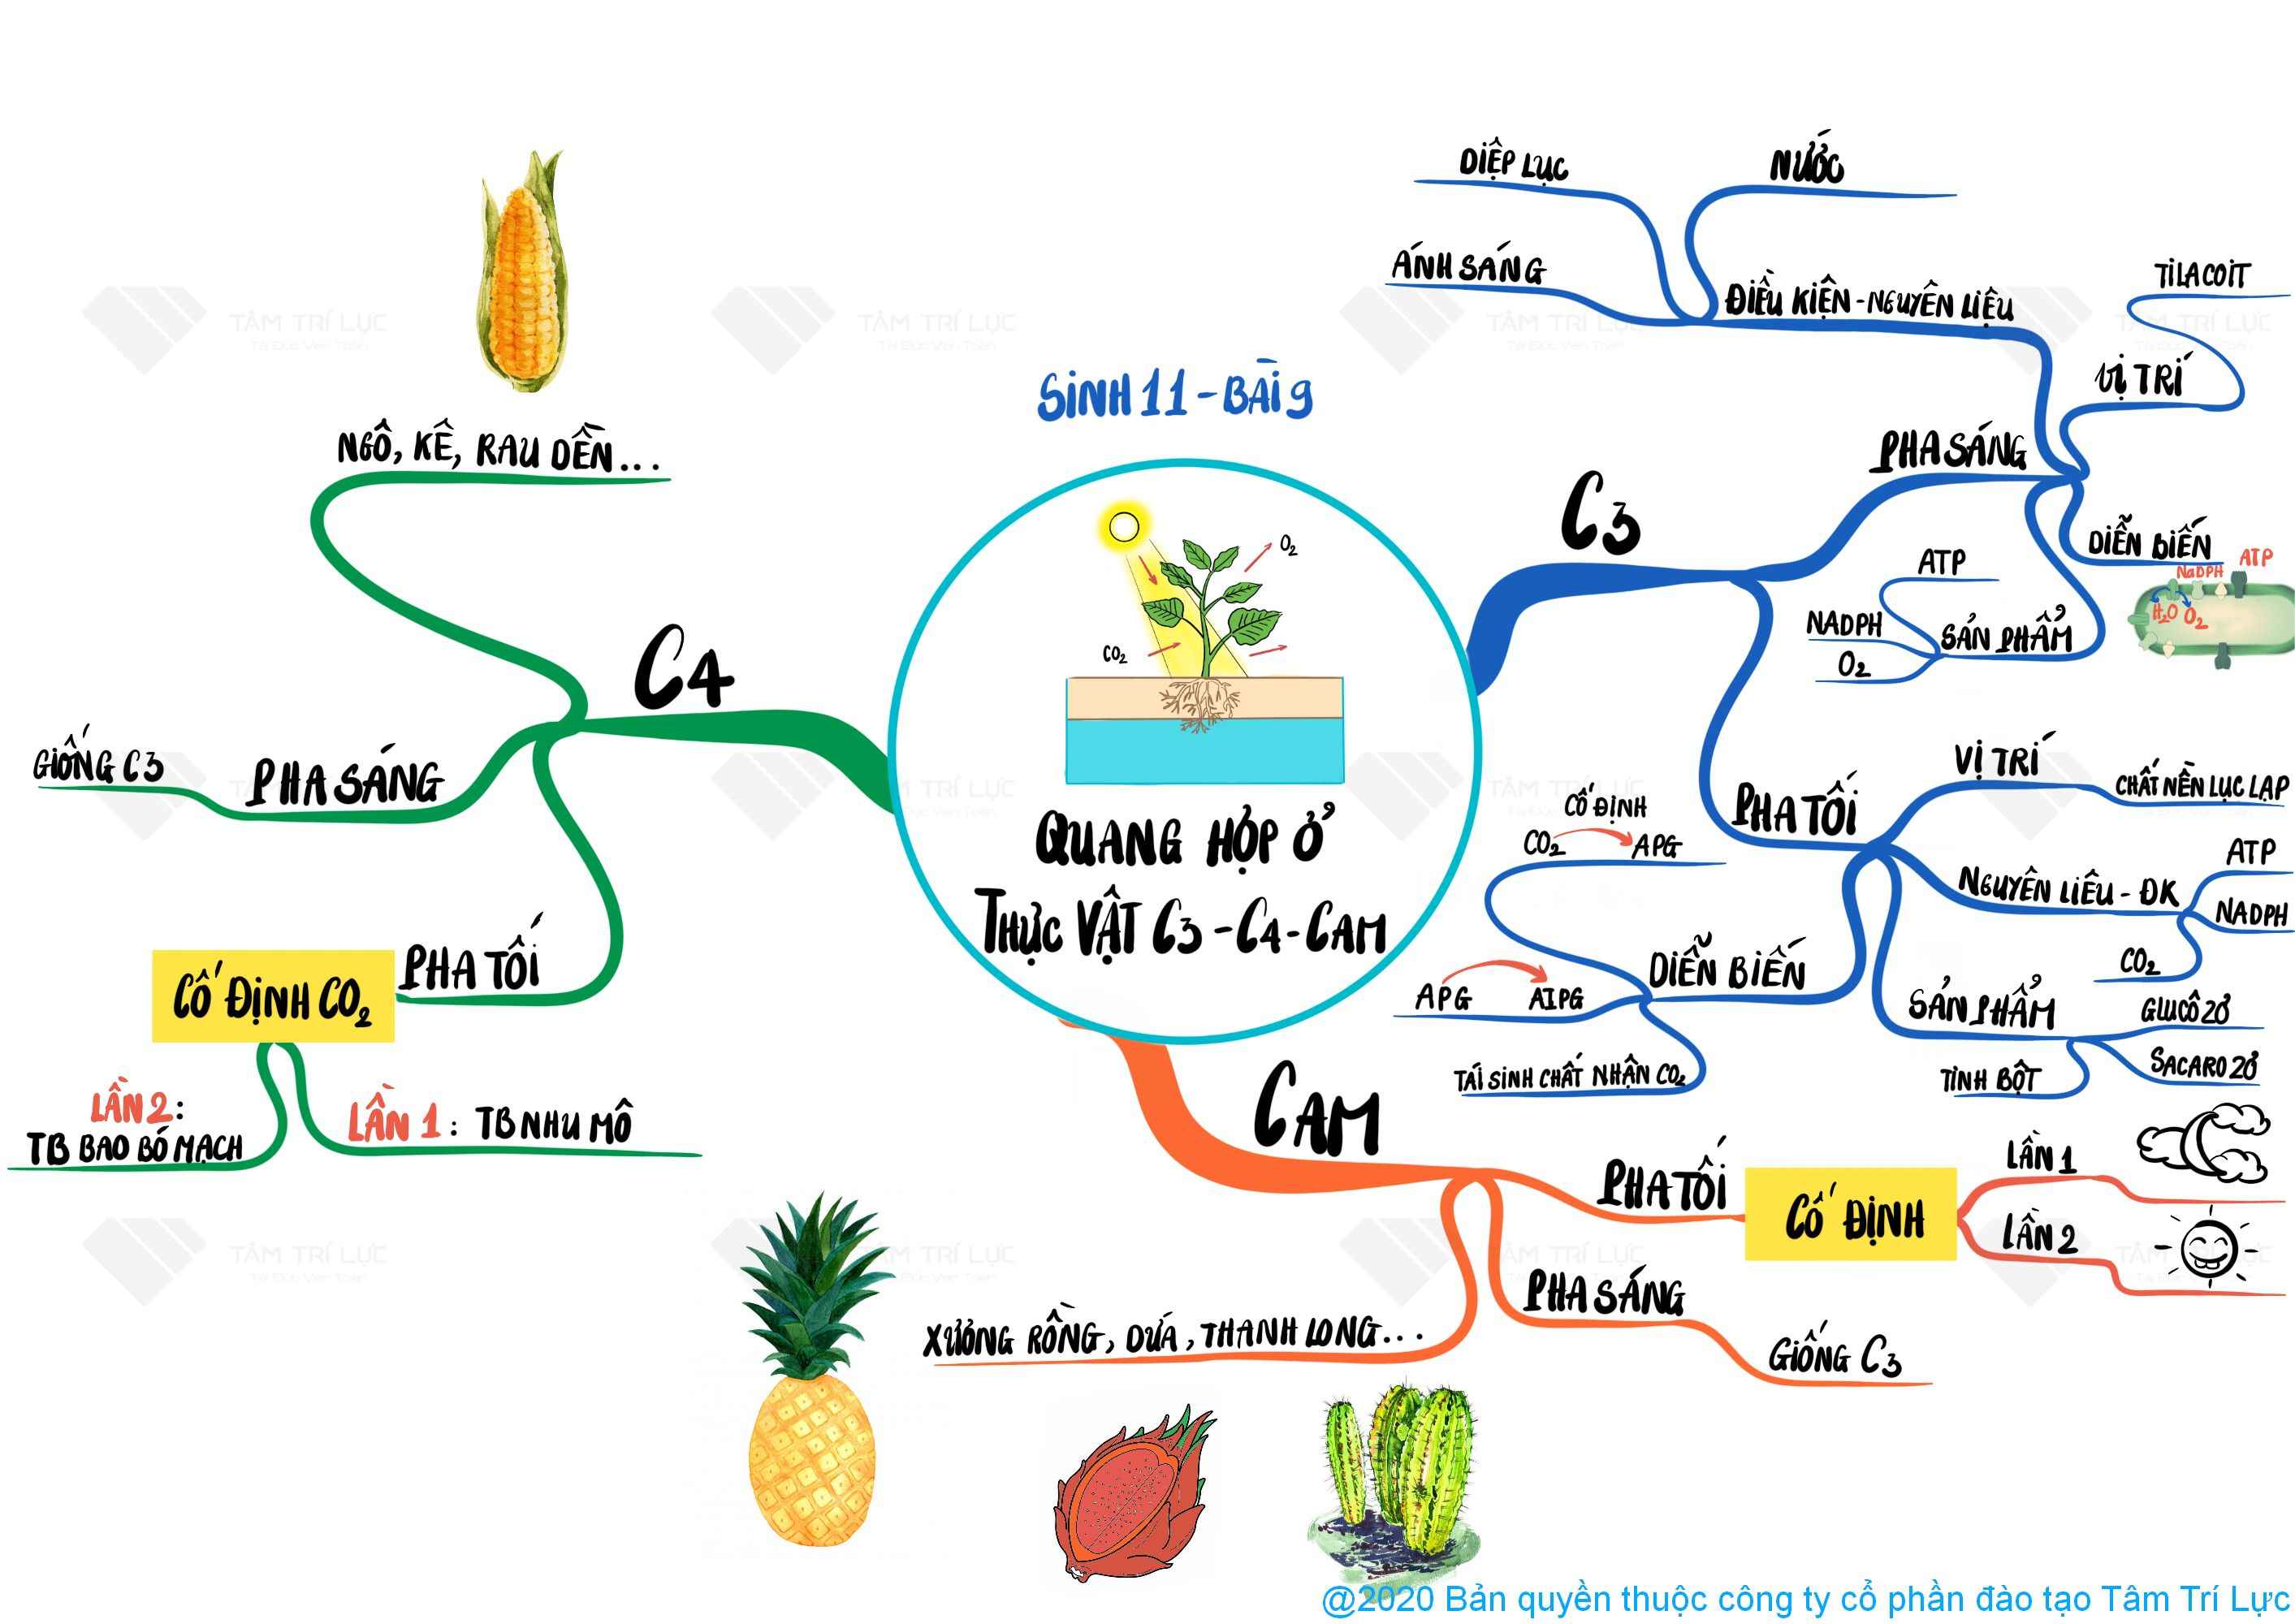 SINH 11 - BÀI 9
O₂
CO₂
QUANG HỢP Ở
THỰC VẬT C3 - C4 - CAM
C3
PHA SÁNG
ĐIỀU KIỆN - NGUYÊN LIỆU
DIỆP LỤC
NƯỚC
ÁNH SÁNG
VỊ TRÍ
TILACOIT
DIỄN BIẾN
NaDPH
ATP
H₂O O₂
SẢN PHẨM
ATP
NADPH
O₂
PHA TỐI
VỊ TRÍ
CHẤT NỀN LỤC LẠP
NGUYÊN LIÊU - ĐK
ATP
NADPH
CO₂
SẢN PHẨM
GLUCÔZƠ
SACAROZƠ
TINH BỘT
DIỄN BIẾN
CỐ ĐỊNH
CO₂ APG
APG AlPG
TÁI SINH CHẤT NHẬN CO₂
CAM
PHA TỐI
CỐ ĐỊNH
LẦN 1
LẦN 2
PHA SÁNG
GIỐNG C3
XƯƠNG RỒNG, DỨA, THANH LONG...
C4
NGÔ, KÊ, RAU DỀN...
PHA SÁNG
GIỐNG C3
PHA TỐI
CỐ ĐỊNH CO₂
LẦN 1: TB NHU MÔ
LẦN 2:
TB BAO BÓ MẠCH
TÂM TRÍ LỰC
@2020 Bản quyền thuộc công ty cổ phần đào tạo Tâm Trí Lực